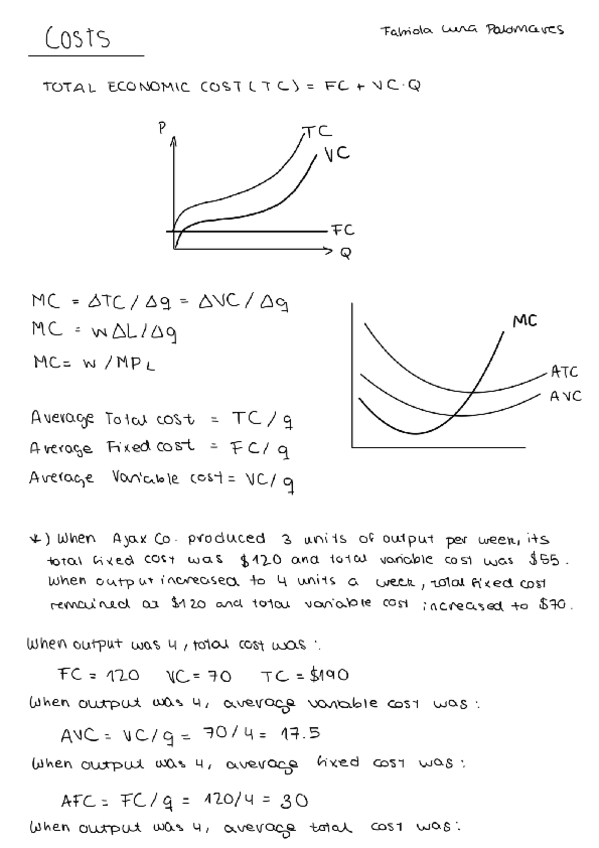 Costs
Fabiola Luna Palomares
TOTAL ECONOMIC COST (TC) = FC + VC·Q
P
TC
VC
FC
Q
MC = ΔTC / Δq = ΔVC / Δq
MC = wΔL/Δq
MC = w / MPL
MC
ATC
AVC
Average Total cost = TC / q
Average Fixed cost = FC / q
Average Variable cost = VC / q
*) When Ajax Co. produced 3 units of output per week, its
total fixed cost was $120 and total variable cost was $55.
When output increased to 4 units a week, total fixed cost
remained at $120 and total variable cost increased to $70.
When output was 4, total cost was:
FC = 120 VC = 70 TC = $190
When output was 4, average variable cost was:
AVC = VC / q = 70/4 = 17.5
When output was 4, average fixed cost was:
AFC = FC / q = 120/4 = 30
When output was 4, average total cost was: